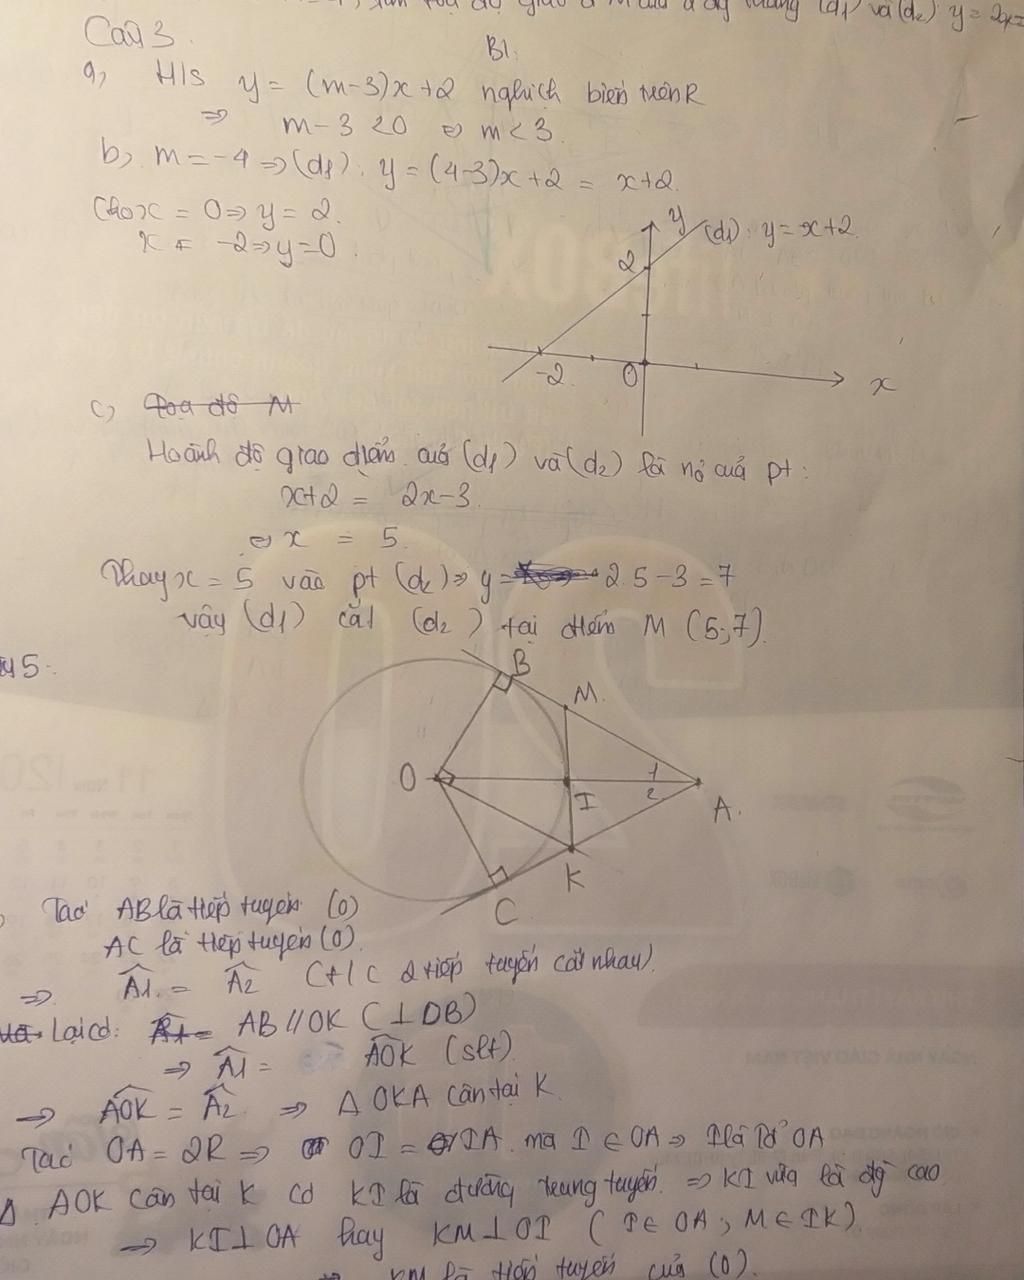 (d1) và (d2) y = 2x
Câu 3.
B1.
a, H/s y = (m-3)x+2 nghịch biến trên R
⇒ m-3 < 0 ⇔ m < 3.
b, m = -4 ⇒ (d1): y = (4-3)x+2 = x+2.
Cho x = 0 ⇒ y = 2.
x = -2 ⇒ y = 0.
y
(d1): y = x+2
2
-2
O
x
c, Toạ độ M
Hoành độ giao điểm của (d1) và (d2) là nộ của pt:
x+2 = 2x-3.
⇔ x = 5.
Thay x = 5 vào pt (d2) ⇒ y = 2.5-3 = 7
vậy (d1) cắt (d2) tại điểm M (5;7).
5:
B
M.
O
1
I
2
A.
K
C
Ta có AB là tiếp tuyến (O)
AC là tiếp tuyến (O).
⇒ Â1 = Â2 (t/c 2 tiếp tuyến cắt nhau).
Lại có: AB // OK (⊥ OB)
⇒ Â1 = AÔK (slt).
⇒ AÔK = Â2 ⇒ Δ OKA cân tại K.
Ta có OA = 2R ⇒ OI = IA. mà I ∈ OA ⇒ I là Tđ OA
Δ AOK cân tại K có KI là đường trung tuyến. ⇒ KI vừa là đg cao
⇒ KI ⊥ OA hay KM ⊥ OI (I ∈ OA; M ∈ IK).
⇒ KM là tiếp tuyến của (O).